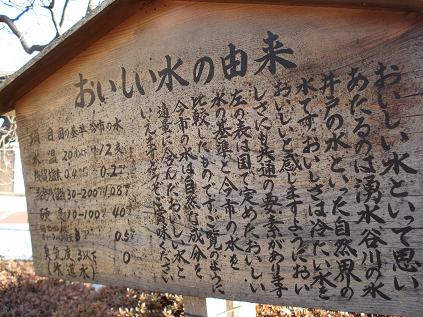 おいしい水の由来
おいしい水といって思い
あたるのは湧水谷川の水
井戸の水といった自然界の
水です。おいしさは冷たい水を
おいしいと感じますようにおい
しさにも共通の要素があります
左の表は国で定めたおいしい
水の基準と今市の水を
比較したものですご覧のように
今市の水は自然な成分を
適量に含んだおいしい水と
いえます
ご賞味ください
項目 国の基準 今市の水
水温 20
0.2
30-200
硬度 10-100 40
0.5
臭気度 3以下 0
(水道水)